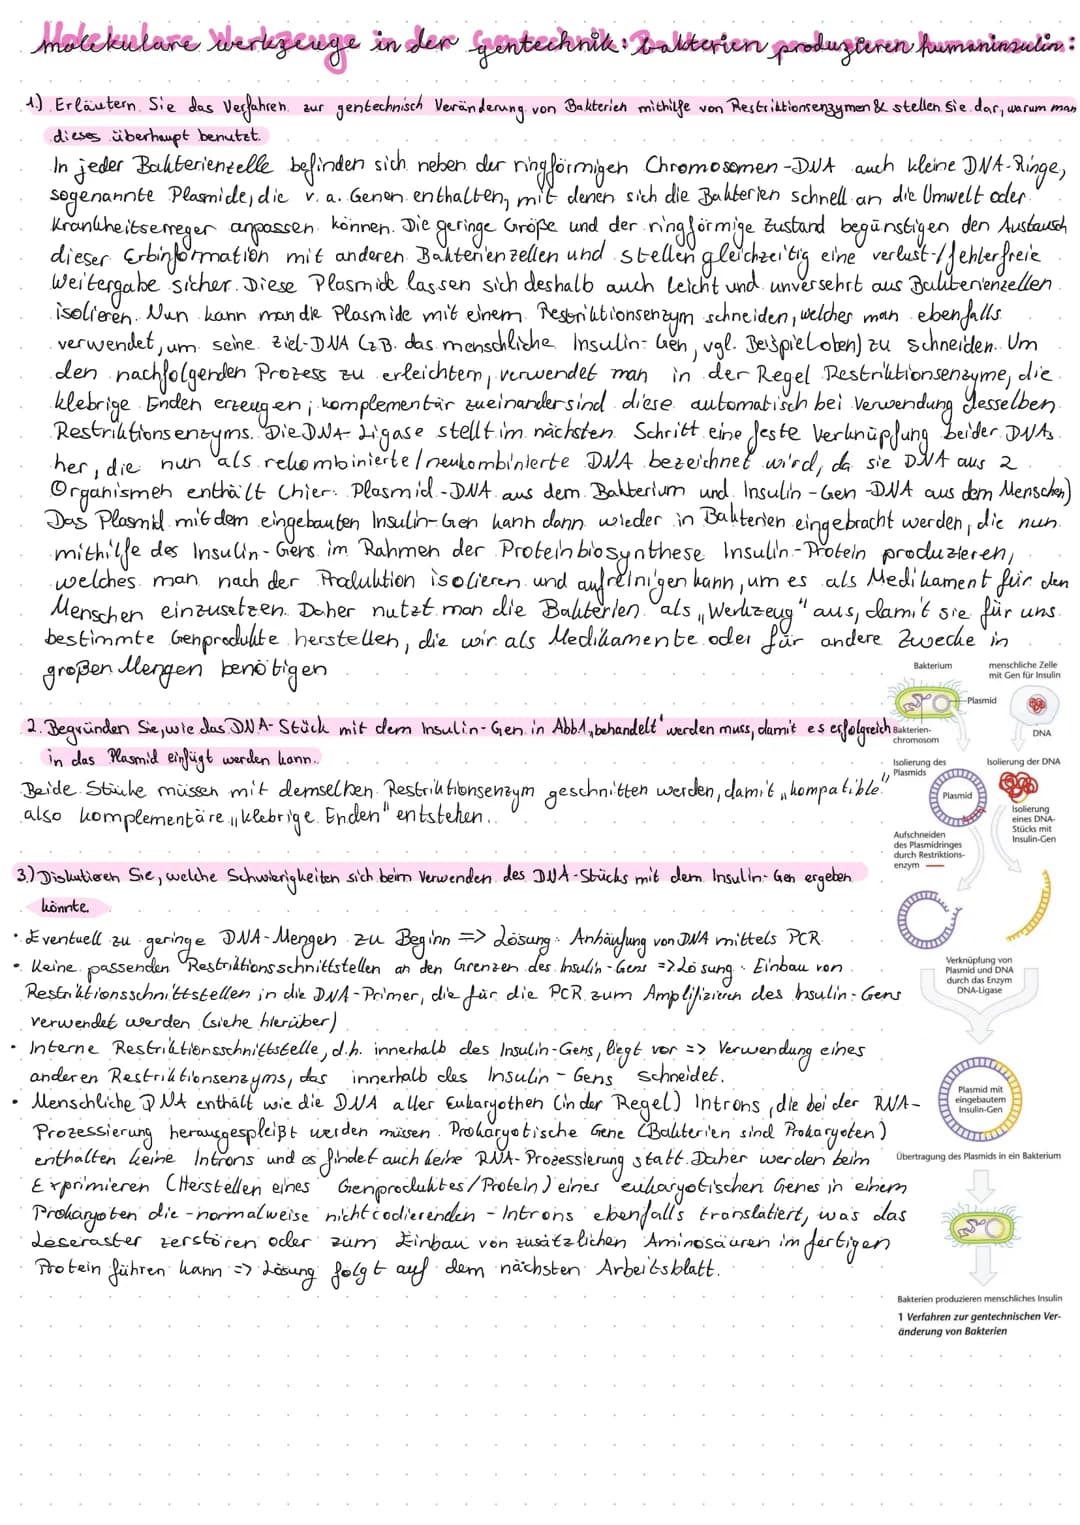 Molekulare Werkzeuge in der Gentechnik: Bakterien produzieren humaninsulin:
1.) Erläutern Sie das Verfahren zur gentechnisch Veränderung von Bakterien mithilfe von Restriktionsenzymen & stellen Sie dar, warum man
dieses überhaupt benutzt.
In jeder Bakterienzelle befinden sich neben der ringförmigen Chromosomen-DNA auch kleine DNA-Ringe,
sogenannte Plasmide, die v. a. Genen enthalten, mit denen sich die Bakterien schnell an die Umwelt oder
Krankheitserreger anpassen können. Die geringe Größe und der ringförmige Zustand begünstigen den Austausch
dieser Erbinformation mit anderen Bakterienzellen und stellen gleichzeitig eine verlust-/fehlerfreie
Weitergabe sicher. Diese Plasmide lassen sich deshalb auch leicht und unversehrt aus Bakterienzellen
isolieren. Nun kann man die Plasmide mit einem Restriktionsenzym schneiden, welches man ebenfalls
verwendet, um seine Ziel-DNA (z.B. das menschliche Insulin-Gen, vgl. Beispiel oben) zu schneiden. Um
den nachfolgenden Prozess zu erleichtern, verwendet man in der Regel Restriktionsenzyme, die
klebrige Enden erzeugen; komplementär zueinander sind diese automatisch bei Verwendung desselben
Restriktionsenzyms. Die DNA-Ligase stellt im nächsten Schritt eine feste Verknüpfung beider DNAs
her, die nun als rekombinierte/neukombinierte DNA bezeichnet wird, da sie DNA aus 2
Organismen enthält (hier: Plasmid-DNA aus dem Bakterium und Insulin-Gen-DNA aus dem Menschen)
Das Plasmid mit dem eingebauten Insulin-Gen kann dann wieder in Bakterien eingebracht werden, die nun
mithilfe des Insulin-Gens im Rahmen der Proteinbiosynthese Insulin-Protein produzieren,
welches man nach der Produktion isolieren und aufreinigen kann, um es als Medikament für den
Menschen einzusetzen. Daher nutzt man die Bakterien als „Werkzeug" aus, damit sie für uns
bestimmte Genprodukte herstellen, die wir als Medikamente oder für andere Zwecke in
großen Mengen benötigen
2. Begründen Sie, wie das DNA-Stück mit dem Insulin-Gen in Abb1 „behandelt" werden muss, damit es erfolgreich
in das Plasmid einfügt werden kann.
Beide Stücke müssen mit demselben Restriktionsenzym geschnitten werden, damit „kompatible"
also komplementäre „klebrige Enden" entstehen.
3.) Diskutieren Sie, welche Schwierigkeiten sich beim Verwenden des DNA-Stücks mit dem Insulin-Gen ergeben
könnte.
• Eventuell zu geringe DNA-Mengen zu Beginn => Lösung: Anhäufung von DNA mittels PCR
• Keine passenden Restriktionsschnittstellen an den Grenzen des Insulin-Gens => Lösung: Einbau von
Restriktionsschnittstellen in die DNA-Primer, die für die PCR zum Amplifizieren des Insulin-Gens
verwendet werden (siehe hierüber)
• Interne Restriktionsschnittstelle, d.h. innerhalb des Insulin-Gens, liegt vor => Verwendung eines
anderen Restriktionsenzyms, das innerhalb des Insulin-Gens schneidet.
• Menschliche DNA enthält wie die DNA aller Eukaryothen (in der Regel) Introns, die bei der RNA-
Prozessierung herausgespleißt werden müssen. Prokaryotische Gene (Bakterien sind Prokaryoten)
enthalten keine Introns und es findet auch keine RNA-Prozessierung statt. Daher werden beim
Exprimieren (Herstellen eines Genproduktes/Protein) eines eukaryotischen Genes in einem
Prokaryoten die -normalweise nicht codierenden - Introns ebenfalls translatiert, was das
Leseraster zerstören oder zum Einbau von zusätzlichen Aminosäuren im fertigen
Protein führen kann => Lösung folgt auf dem nächsten Arbeitsblatt.
Bakterium
menschliche Zelle
mit Gen für Insulin
Plasmid
Bakterien-
chromosom
DNA
Isolierung des
Plasmids
Isolierung der DNA
Plasmid
Isolierung
eines DNA-
Stücks mit
Insulin-Gen
Aufschneiden
des Plasmidringes
durch Restriktions-
enzym
Verknüpfung von
Plasmid und DNA
durch das Enzym
DNA-Ligase
Plasmid mit
eingebautem
Insulin-Gen
Übertragung des Plasmids in ein Bakterium
Bakterien produzieren menschliches Insulin
1 Verfahren zur gentechnischen Ver-
änderung von Bakterien